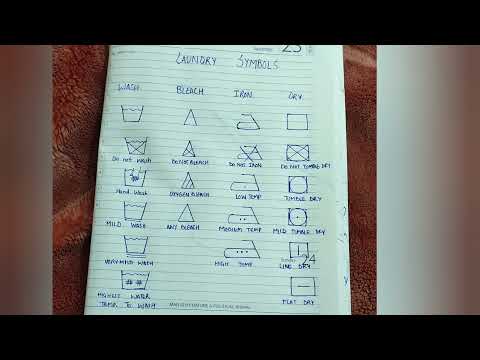 23
LAUNDRY SYMBOLS
WASH BLEACH IRON DRY
DO NOT WASH DO NOT BLEACH DO NOT IRON DO NOT TUMBLE DRY
HAND WASH OXYGEN BLEACH LOW TEMP TUMBLE DRY
MILD WASH ANY BLEACH MEDIUM TEMP MILD TUMBLE DRY
VERY MILD WASH HIGH TEMP LINE DRY
24
##
HIGHEST WATER FLAT DRY
TEMP TO WASH